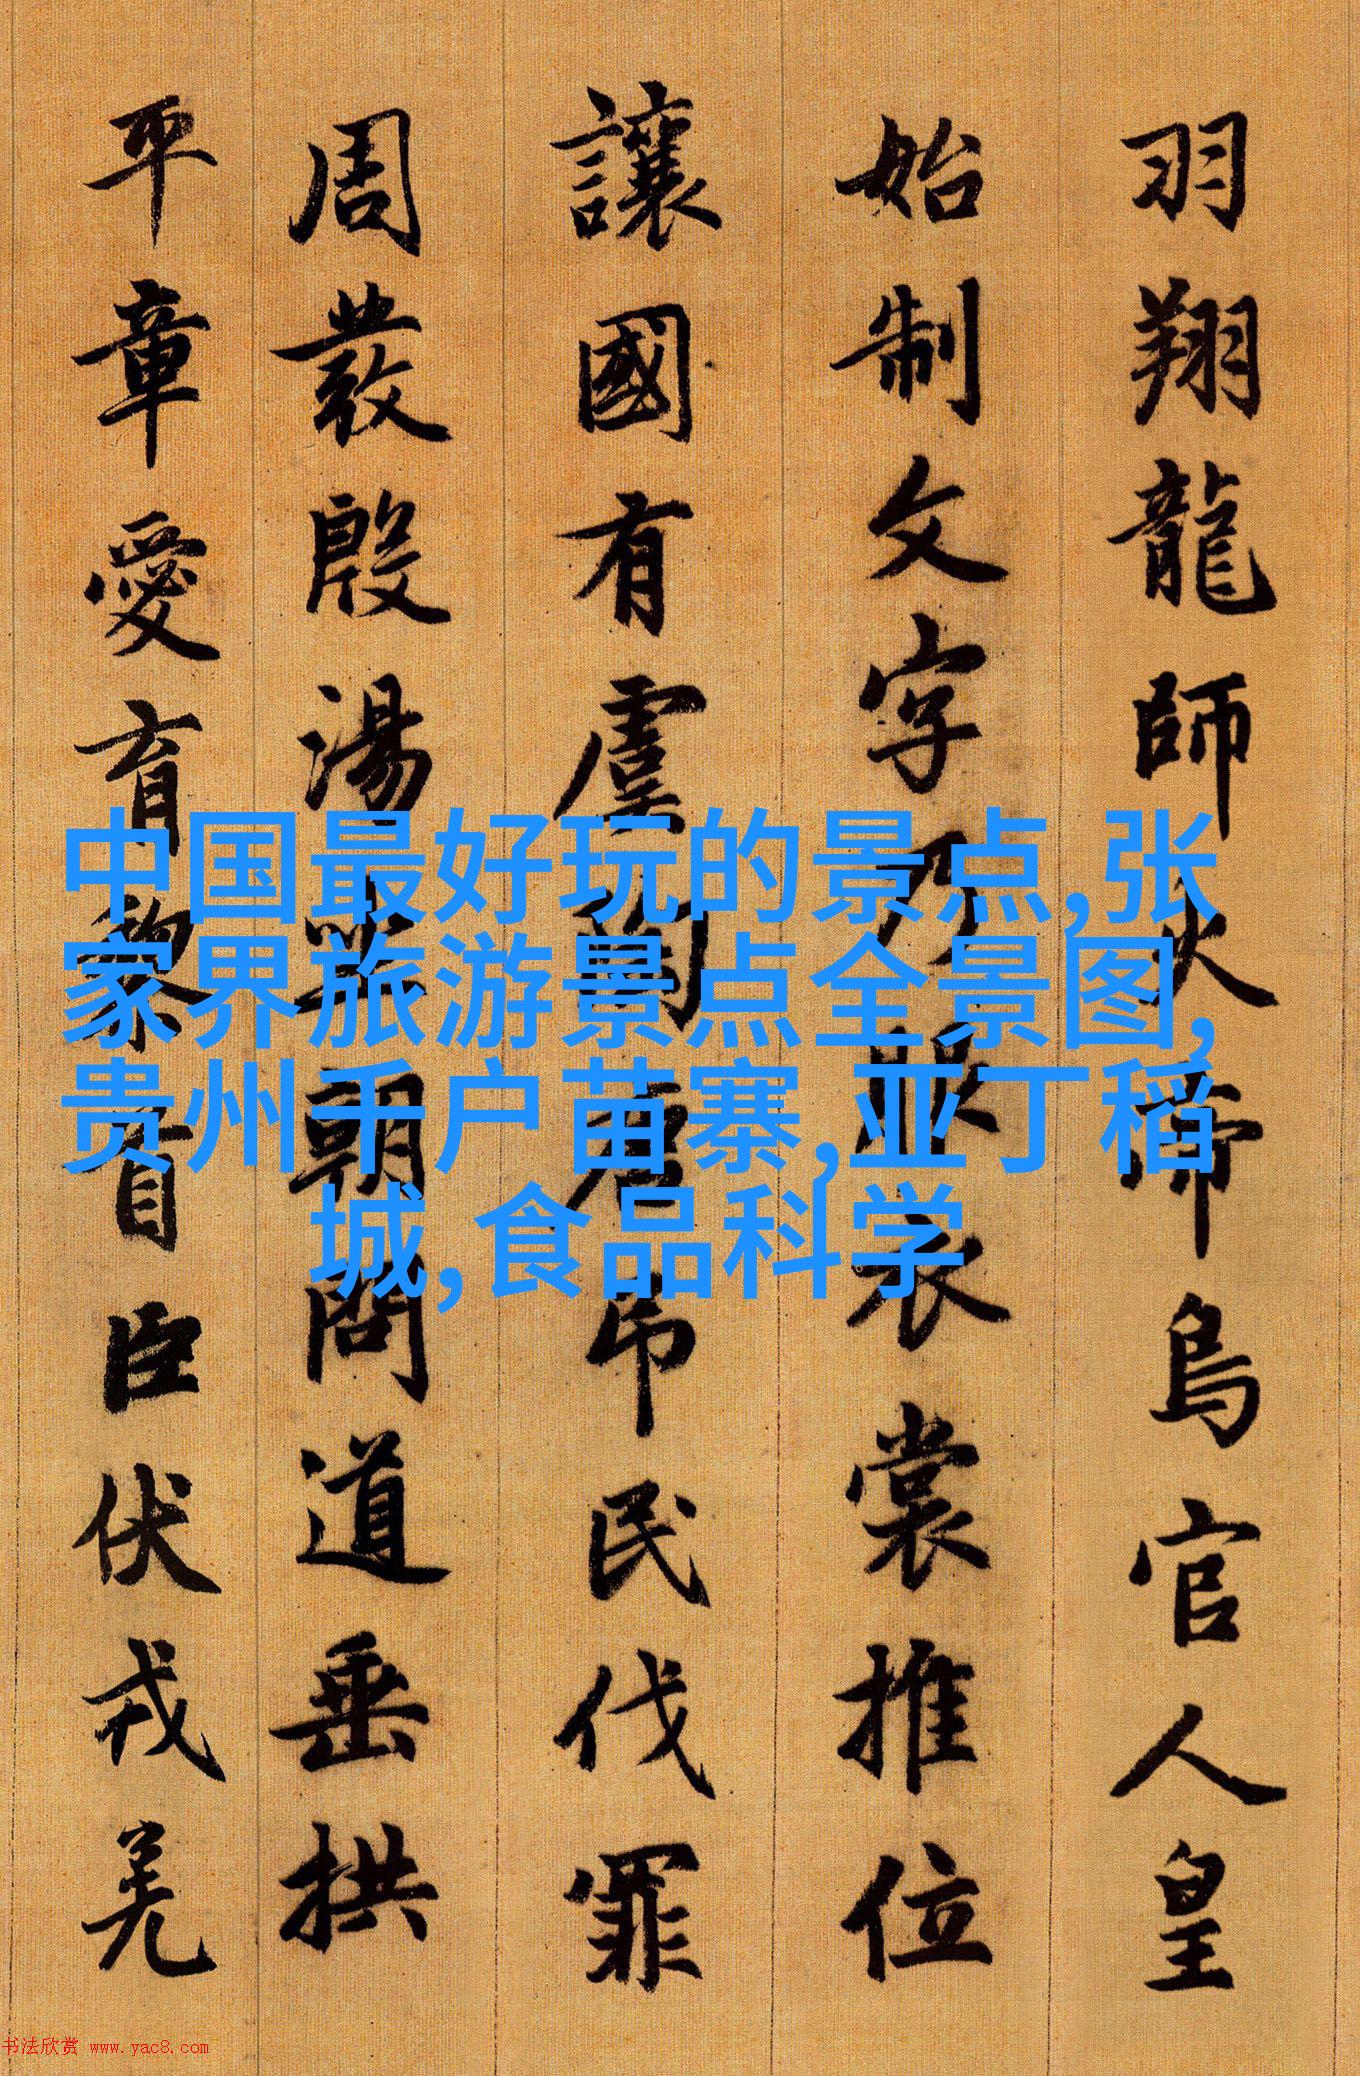 羽翔龍師火帝鳥官人皇
始制文字乃服衣裳推位
讓國有虞陶唐吊民伐罪
周發殷湯坐朝問道垂拱
平章愛育黎首臣伏戎羌
中国最好玩的景点,张
家界旅游景点全景图,
贵州千户苗寨,亚丁稻
城,食品科学
书法欣赏 www.yac8.com